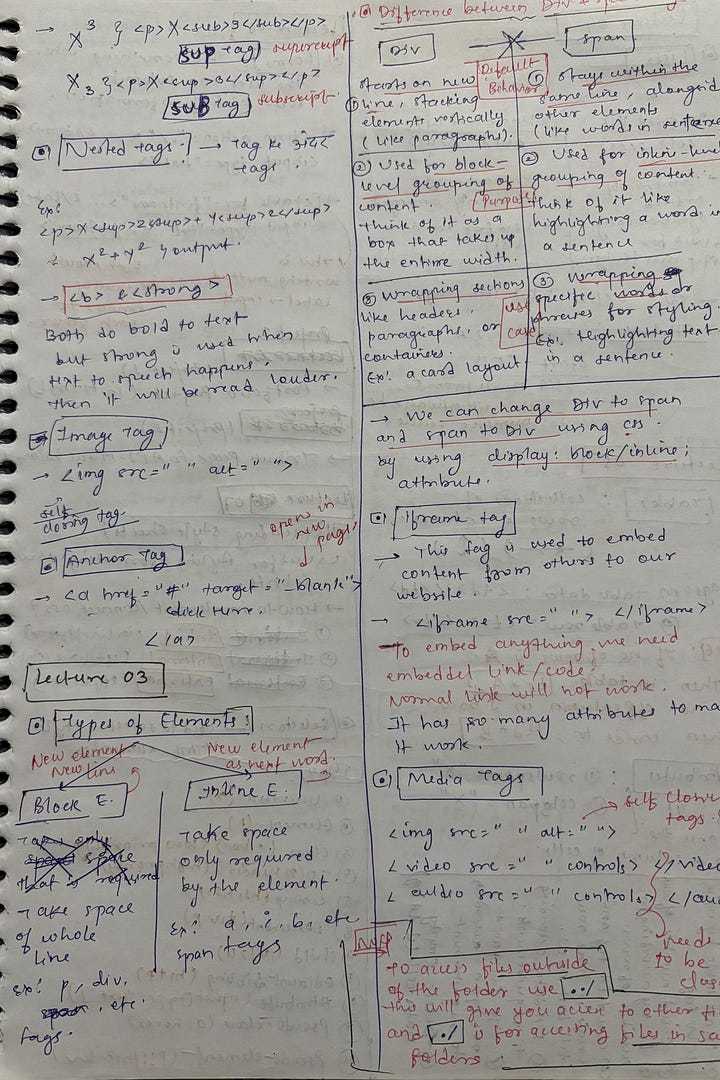 → X³ } <p>X<sub>3</sub></p>
SUP tag) superscript
X₃ } <p>X<sup>3</sup></p>
SUB tag) subscript.
Nested tags: → tag ke अंदर
tags.
Ex:
<p>X<sup>2<sup>+ Y<sup>2</sup>
X²+y² output.
→ <b> & <strong>
Both do bold to text
but strong is used when
text to speech happens,
then it will be read louder.
Image Tag
→ <img src=" " alt=" ">
self
closing tag.
opens in
new
page.
Anchor Tag
→ <a href="#" target="_blank">
click Here.
</a>
Lecture 03
Types of Elements:
New element
New line
New element
as next word.
Block E.
Inline E.
Take only
space
that is required
Take space
of whole
line
Ex: p, div,
span, etc.
tags.
Take space
only required
by the element.
Ex: a, i, b, etc
span tags
Difference between Div & span
Div
span
Default
Behavior
① starts on new
line, stacking
elements vertically
(like paragraphs).
① stays within the
same line, alongside
other elements
(like words in sentence
② Used for block-
level grouping of
content.
think of it as a
box that takes up
the entire width.
Purpose
② Used for inline-level
grouping of content.
think of it like
highlighting a word in
a sentence
③ Wrapping sections
like headers,
paragraphs, or
containers.
Ex: a card layout
use
case
③ Wrapping
specific words or
phrases for styling.
Ex: Highlighting text
in a sentence.
→ We can change Div to span
and span to Div using css.
by using display: block/inline;
attribute.
Iframe tag
→ This tag is used to embed
content from others to our
website.
→ <iframe src=" "> </iframe>
To embed anything we need
embeddel link/code.
Normal link will not work.
It has so many attributes to ma
it work.
Media Tags
→ self closing
tags.
<img src=" " alt=" ">
< video src=" " controls> </video
< audio src=" " controls> </au
needs
to be
close
to access files outside
of the folder use ../
this will give you access to other fi
and ./ is for accessing files in sa
folders